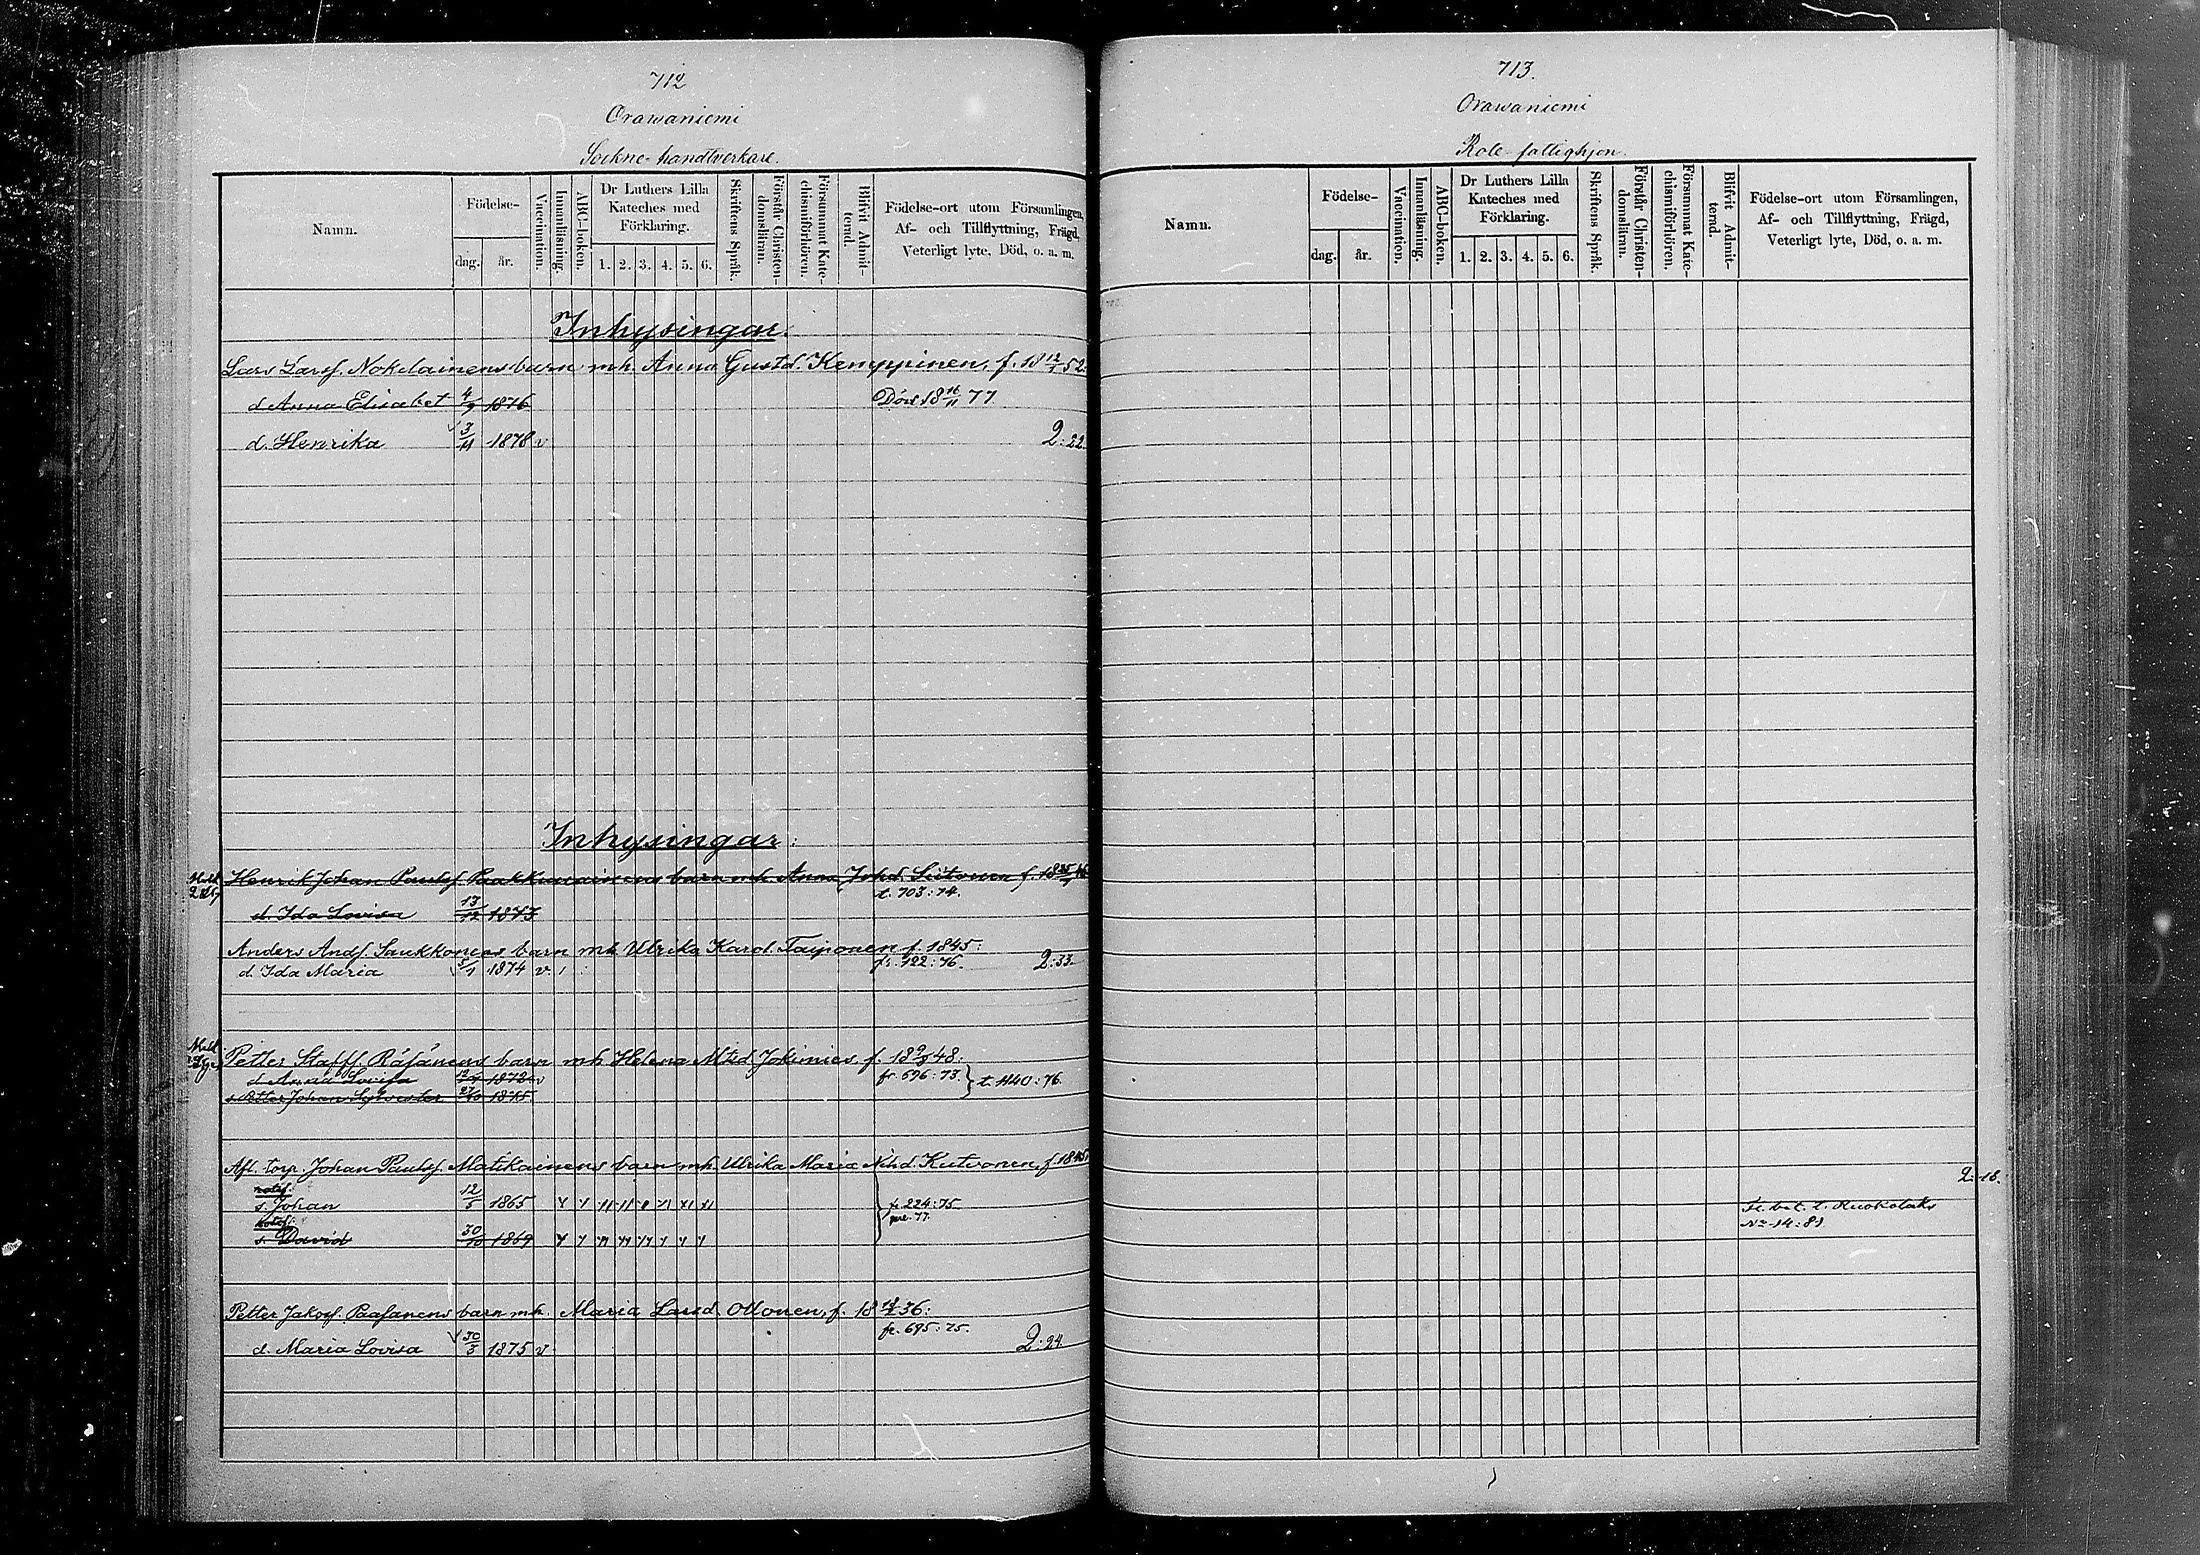 712
Orawaniemi
Sockne-handtverkare.
Namn.
Födelse-
dag.
år.
Vaccination.
Innanläsning.
ABC-boken.
Dr Luthers Lilla
Kateches med
Förklaring.
1. 2. 3. 4. 5. 6.
Skriftens Språk.
Förstår Christen-
domsläran.
Försummat Kate-
chismiförhören.
Blifvit Admit-
terad.
Födelse-ort utom Församlingen,
Af- och Tillflyttning, Frägd,
Veterligt lyte, Död, o. a. m.
Inhysingar.
Lars Larsf. Nokelainens barn mh. Anna Gustd. Kemppinen, f. 18 12/1 52.
d. Anna Elisabet 4/9 1876 Död 18 16/11 77
d. Henrika 3/11 1878 v 2:22.
Inhysingar:
Henrik Johan Paulsf. Paakkunainens barn mh Anna Johd. Siitonen f. 18
t. 703:74.
d. Ida Lovisa 13/12 1873
Anders Andf. Saukkonens barn mh Ulrika Karol. Taiponen f. 1845:
d. Ida Maria 5/1 1874 v fr. 122:76. 2:33.
Petter Staff. Räsänens barn mh Helena Mtsd. Jokimies f. 18 9/8 48:
d. Anna Lovisa 1872 v fr. 696:73. } t. 1140:76.
s. Petter Johan Sylvester 27/10 1875
Afl. torp. Johan Paulsf. Matikainens barn mh. Ulrika Maria Nilsd. Kutvonen, f. 1845:
s. Johan 12/5 1865 fr. 224:75.
s. David 30/10 1869
Petter Jakobf. Paasanens barn mh. Maria Larsd. Ollonen, f. 18 36:
fr. 695:75.
d. Maria Lovisa 30/3 1875 v 2:24.
713.
Orawaniemi
Rote-fattighjon.
Namn.
Födelse-
dag.
år.
Vaccination.
Innanläsning.
ABC-boken.
Dr Luthers Lilla
Kateches med
Förklaring.
1. 2. 3. 4. 5. 6.
Skriftens Språk.
Förstår Christen-
domsläran.
Försummat Kate-
chismiförhören.
Blifvit Admit-
terad.
Födelse-ort utom Församlingen,
Af- och Tillflyttning, Frägd,
Veterligt lyte, Död, o. a. m.
2:18.
bet. t. Ruokolaks
No 14:81